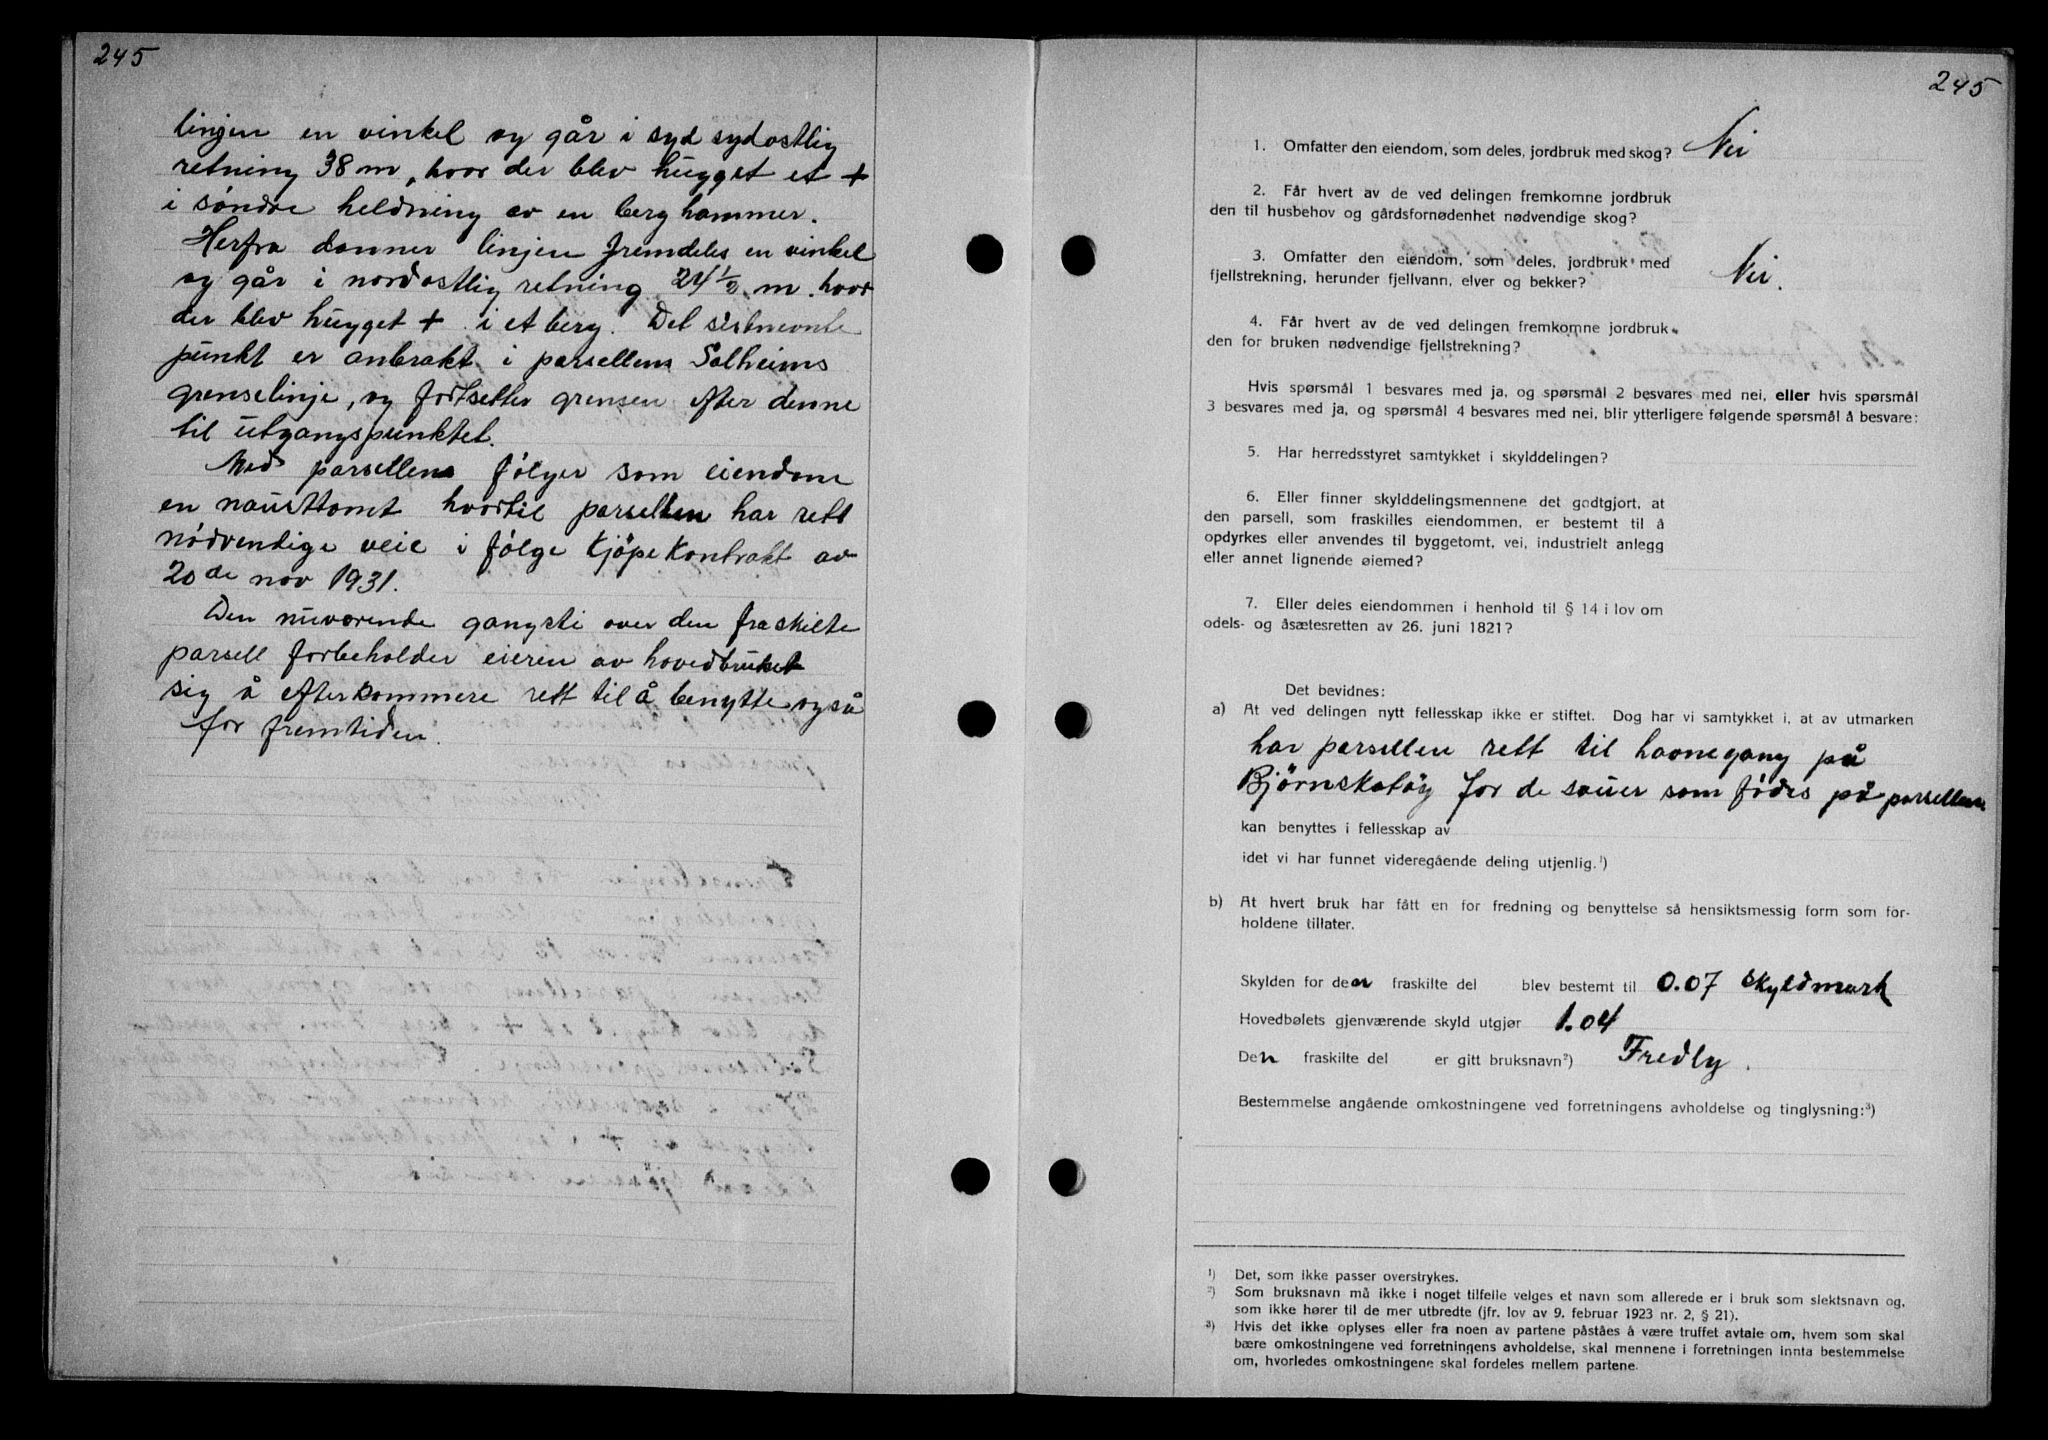 245
linjen en vinkel og går i syd sydostlig
retning 38 m, hvor der blev hugget et +
i søndre heldning av en berg hammer.
Herfra danner linjen fremdeles en vinkel
og går i nordostlig retning 24 1/2 m. hvor
der blev hugget + i et berg. Det sistnevnte
punkt er anbrakt i parsellens Solheims
grenselinje, og fortsetter grensen efter denne
til utgangspunktet.
Med parsellens følger som eiendom
en nausttomt hvortil parsellen har rett
nødvendige veie i følge kjøpekontrakt av
20de nov 1931.
Den nuværende gangsti over den fraskilte
parsell forbeholder eieren av hovedbruket
sig å efterkommere rett til å benytte også
for fremtiden.
245
1. Omfatter den eiendom, som deles, jordbruk med skog? Nei
2. Får hvert av de ved delingen fremkomne jordbruk
den til husbehov og gårdsfornødenhet nødvendige skog?
3. Omfatter den eiendom, som deles, jordbruk med
fjellstrekning, herunder fjellvann, elver og bekker? Nei.
4. Får hvert av de ved delingen fremkomne jordbruk
den for bruken nødvendige fjellstrekning?
Hvis spørsmål 1 besvares med ja, og spørsmål 2 besvares med nei, eller hvis spørsmål
3 besvares med ja, og spørsmål 4 besvares med nei, blir ytterligere følgende spørsmål å besvare:
5. Har herredsstyret samtykket i skylddelingen?
6. Eller finner skylddelingsmennene det godtgjort, at
den parsell, som fraskilles eiendommen, er bestemt til å
opdyrkes eller anvendes til byggetomt, vei, industrielt anlegg
eller annet lignende øiemed?
7. Eller deles eiendommen i henhold til § 14 i lov om
odels- og åsætesretten av 26. juni 1821?
Det bevidnes:
a) At ved delingen nytt fellesskap ikke er stiftet. Dog har vi samtykket i, at av utmarken
har parsellen rett til havnegang på
Bjørnskatøy for de sauer som fødes på parsellen
kan benyttes i fellesskap av
idet vi har funnet videregående deling utjenlig.¹)
b) At hvert bruk har fått en for fredning og benyttelse så hensiktsmessig form som for-
holdene tillater.
Skylden for den fraskilte del blev bestemt til 0.07 skyldmark
Hovedbølets gjenværende skyld utgjør 1.04
Den fraskilte del er gitt bruksnavn²) Fredly.
Bestemmelse angående omkostningene ved forretningens avholdelse og tinglysning:³)
¹) Det, som ikke passer overstrykes.
²) Som bruksnavn må ikke i noget tilfelle velges et navn som allerede er i bruk som slektsnavn og,
som ikke hører til de mer utbredte (jfr. lov av 9. februar 1923 nr. 2, § 21).
³) Hvis det ikke oplyses eller fra noen av partene påståes å være truffet avtale om, hvem som skal
bære omkostningene ved forretningens avholdelse, skal mennene i forretningen innta bestemmelse
om, hvorledes omkostningene skal fordeles mellem partene.